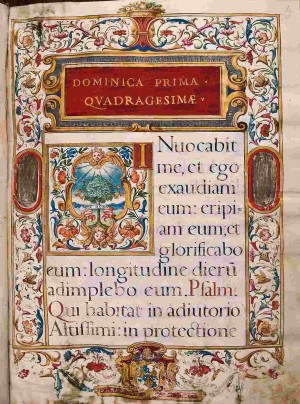 DOMINICA PRIMA ·
QVADRAGESIMÆ ·
INuocabit
me, et ego
exaudiam
eum: eripi-
am eum, et
glorificabo
eum: longitudine dierū
adimplebo eum. Psalm.
Qui habitat in adiutorio
Altissimi: in protectione